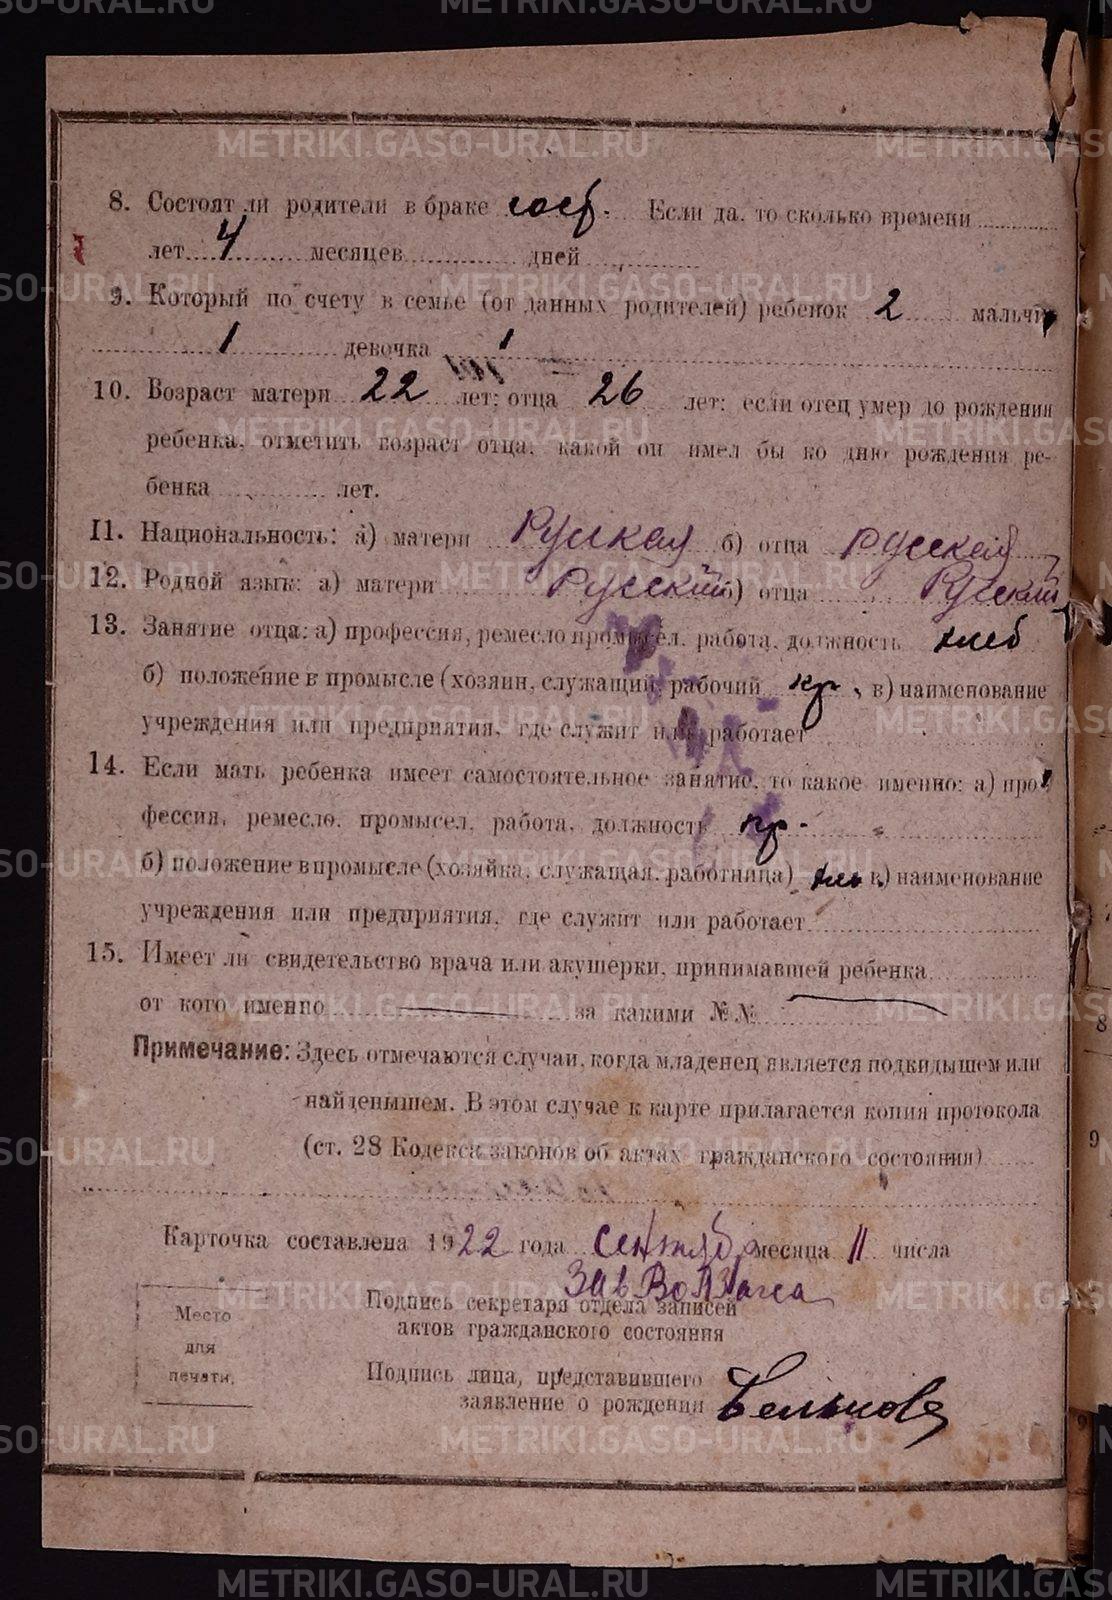 8. Состоят ли родители в браке сост. Если да, то сколько времени
лет 4 месяцев дней
9. Который по счету в семье (от данных родителей) ребенок 2 мальчи
1 девочка 1
10. Возраст матери 22 лет; отца 26 лет; если отец умер до рождения
ребенка, отметить возраст отца, какой он имел бы ко дню рождения ре-
бенка лет.
11. Национальность: а) матери Руская б) отца русская
12. Родной язык: а) матери Русский б) отца Руский
13. Занятие отца: а) профессия, ремесло промысел, работа, должность хлеб
б) положение в промысле (хозяин, служащий, рабочий кр. в) наименование
учреждения или предприятия, где служит или работает
14. Если мать ребенка имеет самостоятельное занятие, то какое именно: а) про-
фессия, ремесло, промысел, работа, должность кр.
б) положение в промысле (хозяйка, служащая, работница) в) наименование
учреждения или предприятия, где служит или работает
15. Имеет ли свидетельство врача или акушерки, принимавшей ребенка
от кого именно за какими №№
Примечание: Здесь отмечаются случаи, когда младенец является подкидышем или
найденышем. В этом случае к карте прилагается копия протокола
(ст. 28 Кодекса законов об актах гражданского состояния)
Карточка составлена 1922 года сентяб месяца 11 числа
Зав Вол Загса
Подпись секретаря отдела записей
актов гражданского состояния
Место
для
печати.
Подпись лица, представившего
заявление о рождении
METRIKI.GASO-URAL.RU